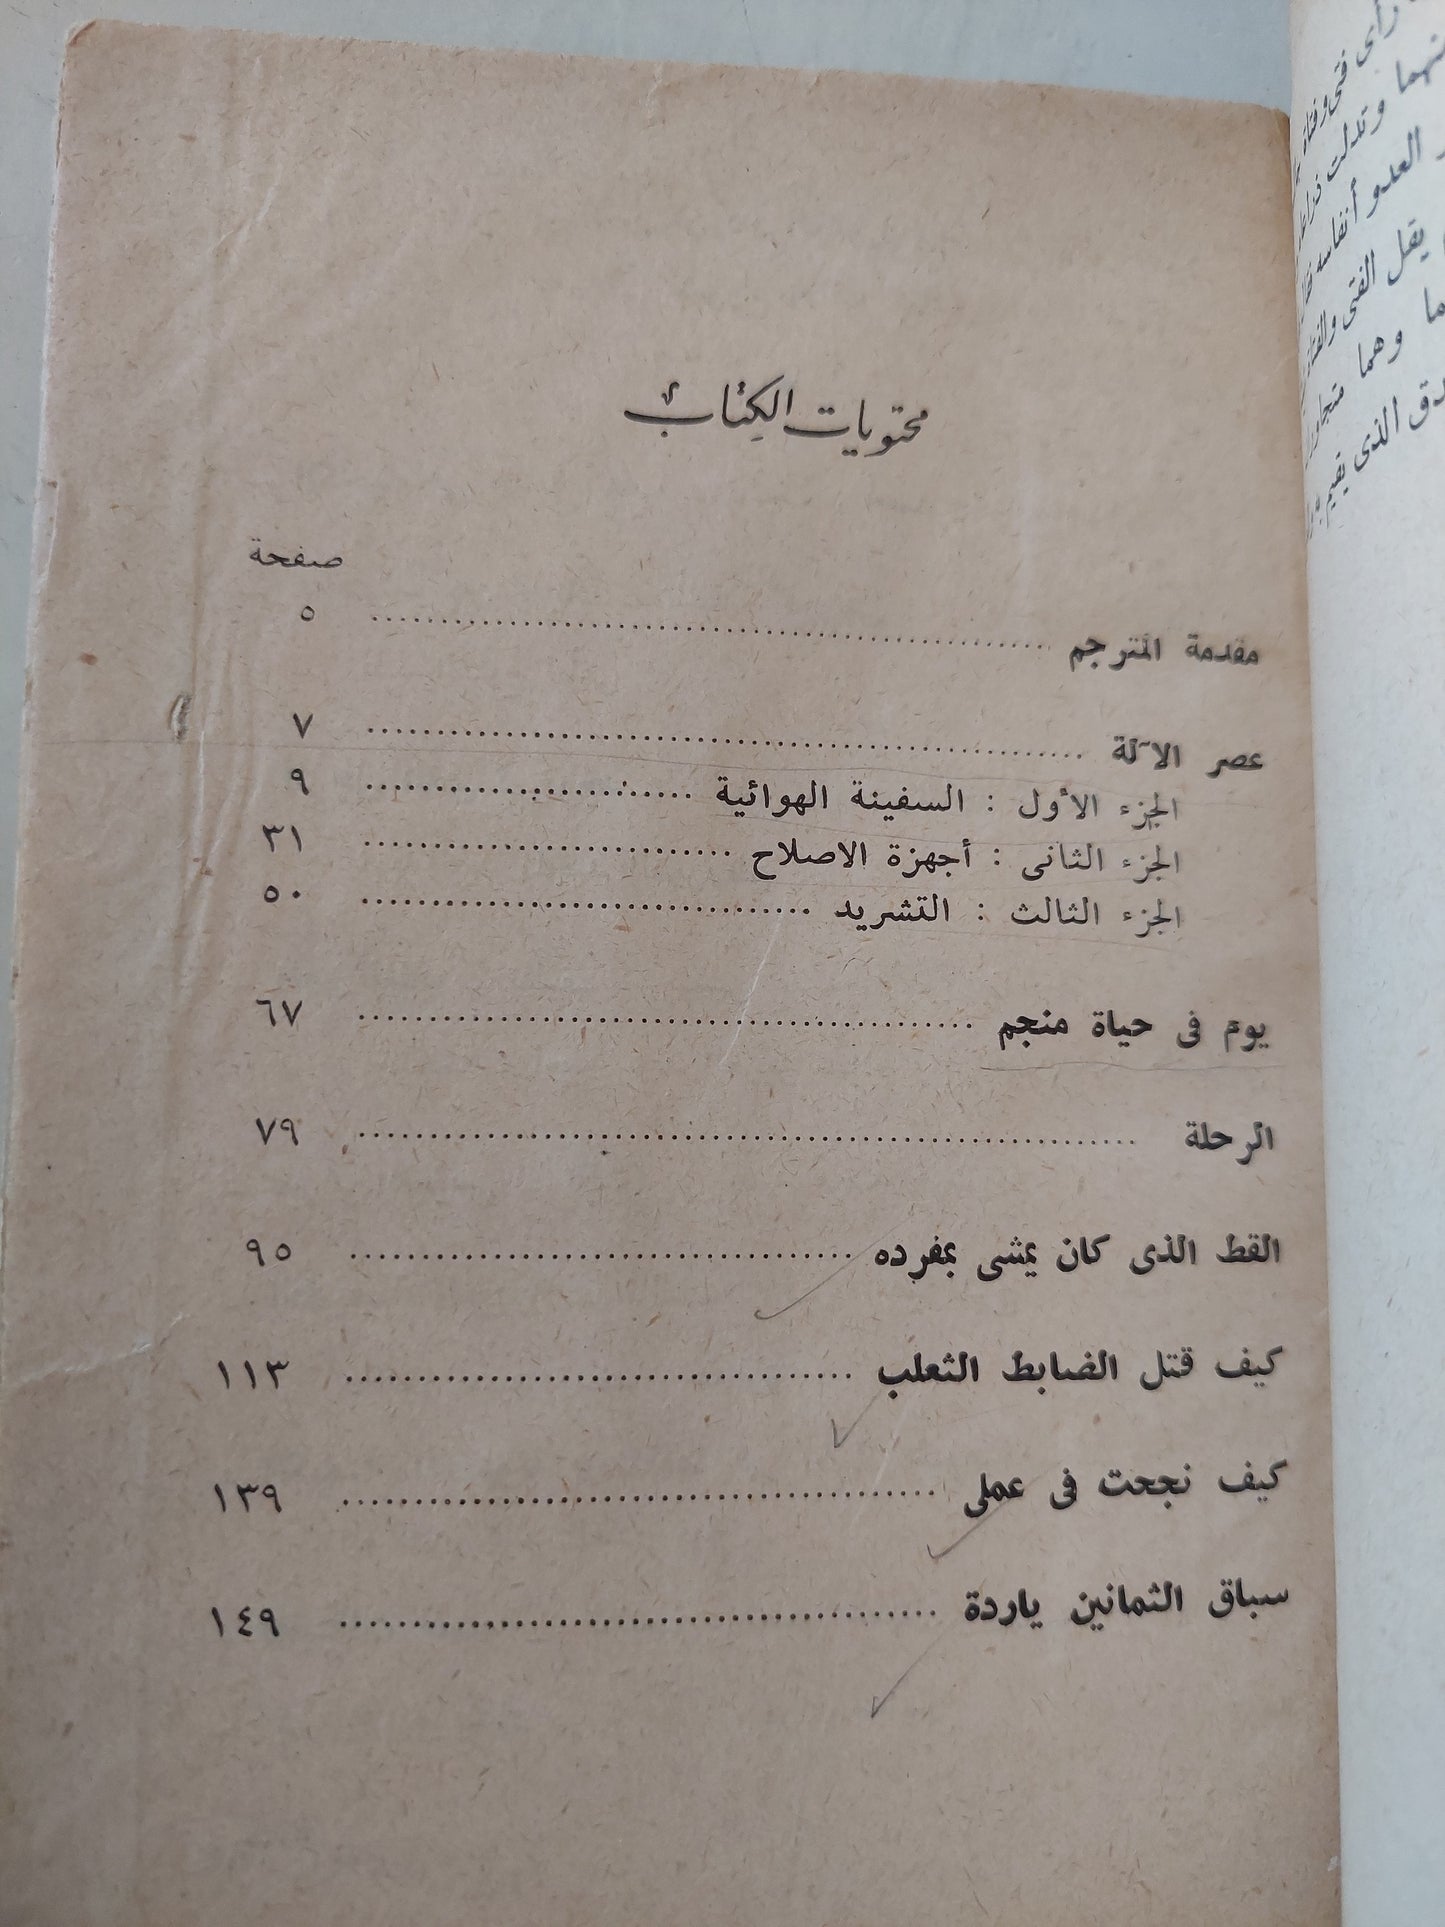 محتويات الكتاب
صفحة
مقدمة المترجم ........ ٥
عصر الآلة ........ ٧
الجزء الأول : السفينة الهوائية ........ ٩
الجزء الثانى : أجهزة الاصلاح ........ ٣١
الجزء الثالث : التشريد ........ ٥٠
يوم فى حياة منجم ........ ٦٧
الرحلة ........ ٧٩
القط الذى كان يمشى بمفرده ........ ٩٥
كيف قتل الضابط الثعلب ........ ١١٣
كيف نجحت فى عملى ........ ١٣٩
سباق الثمانين ياردة ........ ١٤٩
رأى فتى وفتاة
وتدلت
العدو أنفاسه
يقل الفتى والفتاة
وهما
الذى يقيم